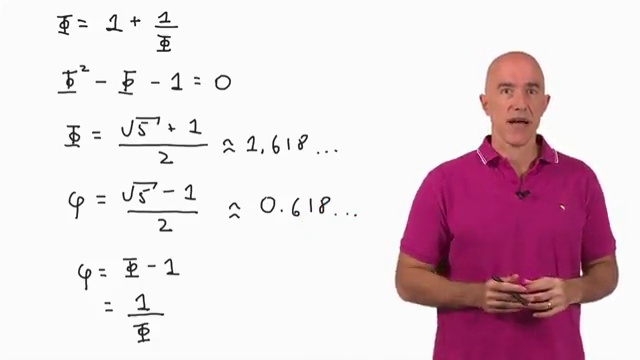 Φ = 1 + 1/Φ
Φ² - Φ - 1 = 0
Φ = (√5 + 1)/2 ≈ 1.618...
φ = (√5 - 1)/2 ≈ 0.618...
φ = Φ - 1
= 1/Φ